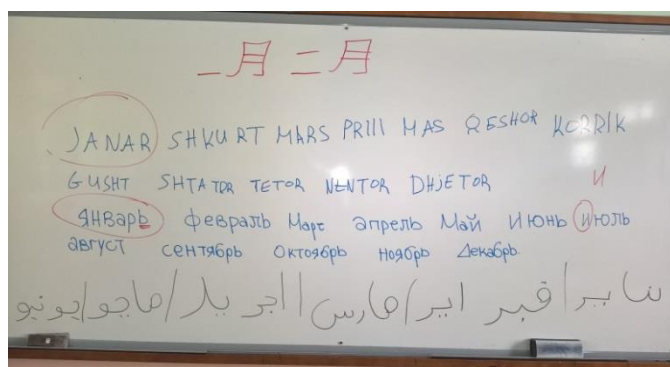 一月 二月
JANAR SHKURT MARS PRIII MAS QESHOR KORRIK
GUSHT SHTATOR TETOR NENTOR DHJETOR
И
ЯНВарЬ февраль Март апрель Май Июнь Июль
август сентябрь Октоябрь ноябрь Декабрь
ينا ير/ فبر اير/ مارس/ ابر يل/ مايو/يونيو